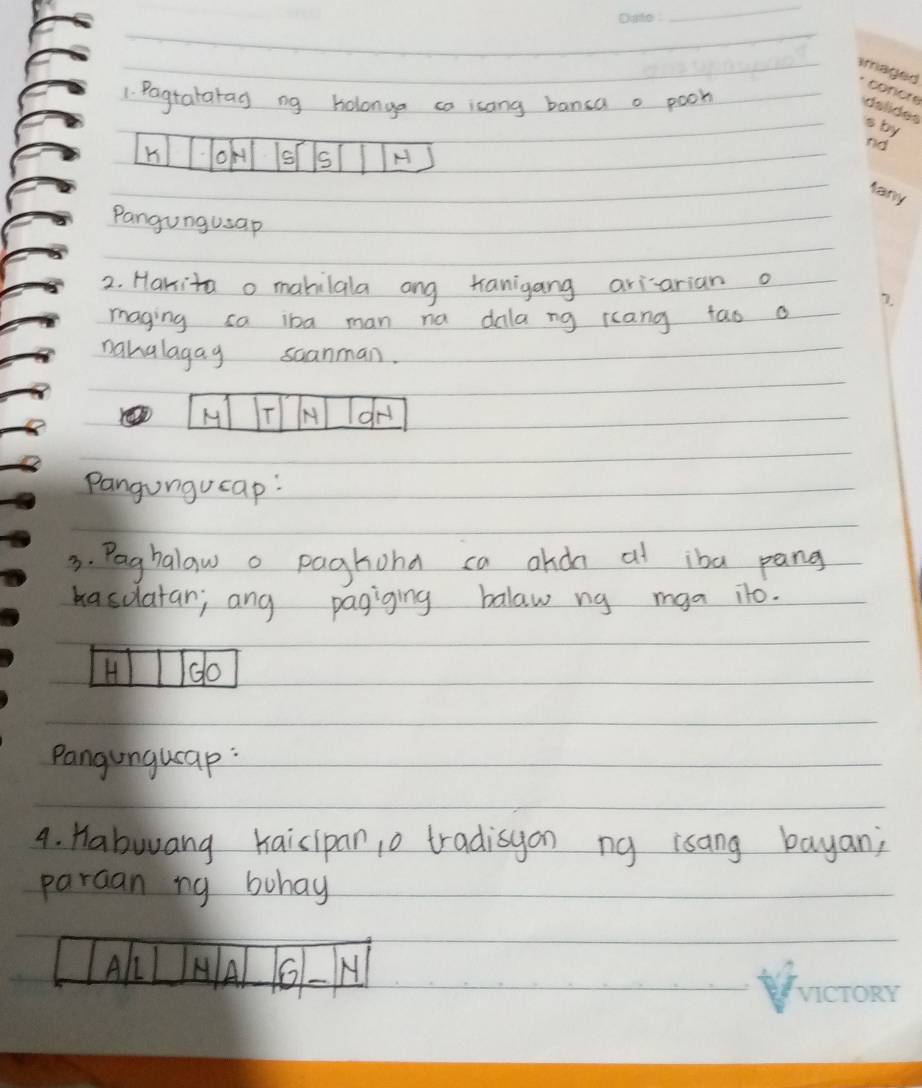 Date:
1. Pagtatatag ng kolonya sa isang bansa o pook
K ON S S N
Pangungusap
2. Makita o mahilala ang kanigang ari-arian o
maging sa iba man na dala ng isang tao o
nakalagay saanman.
M T N ON
Pangungusap:
3. Paghalaw o pagkuha sa akda at iba pang
kasulatan; ang pagiging halaw ng mga ito.
H GO
Pangungusap:
4. Kabuuang kaisipan, o tradisyon ng isang bayan;
paraan ng buhay
A L N A G - N
VICTORY
amaged
concre
dslides
s by
nd
fany
n.